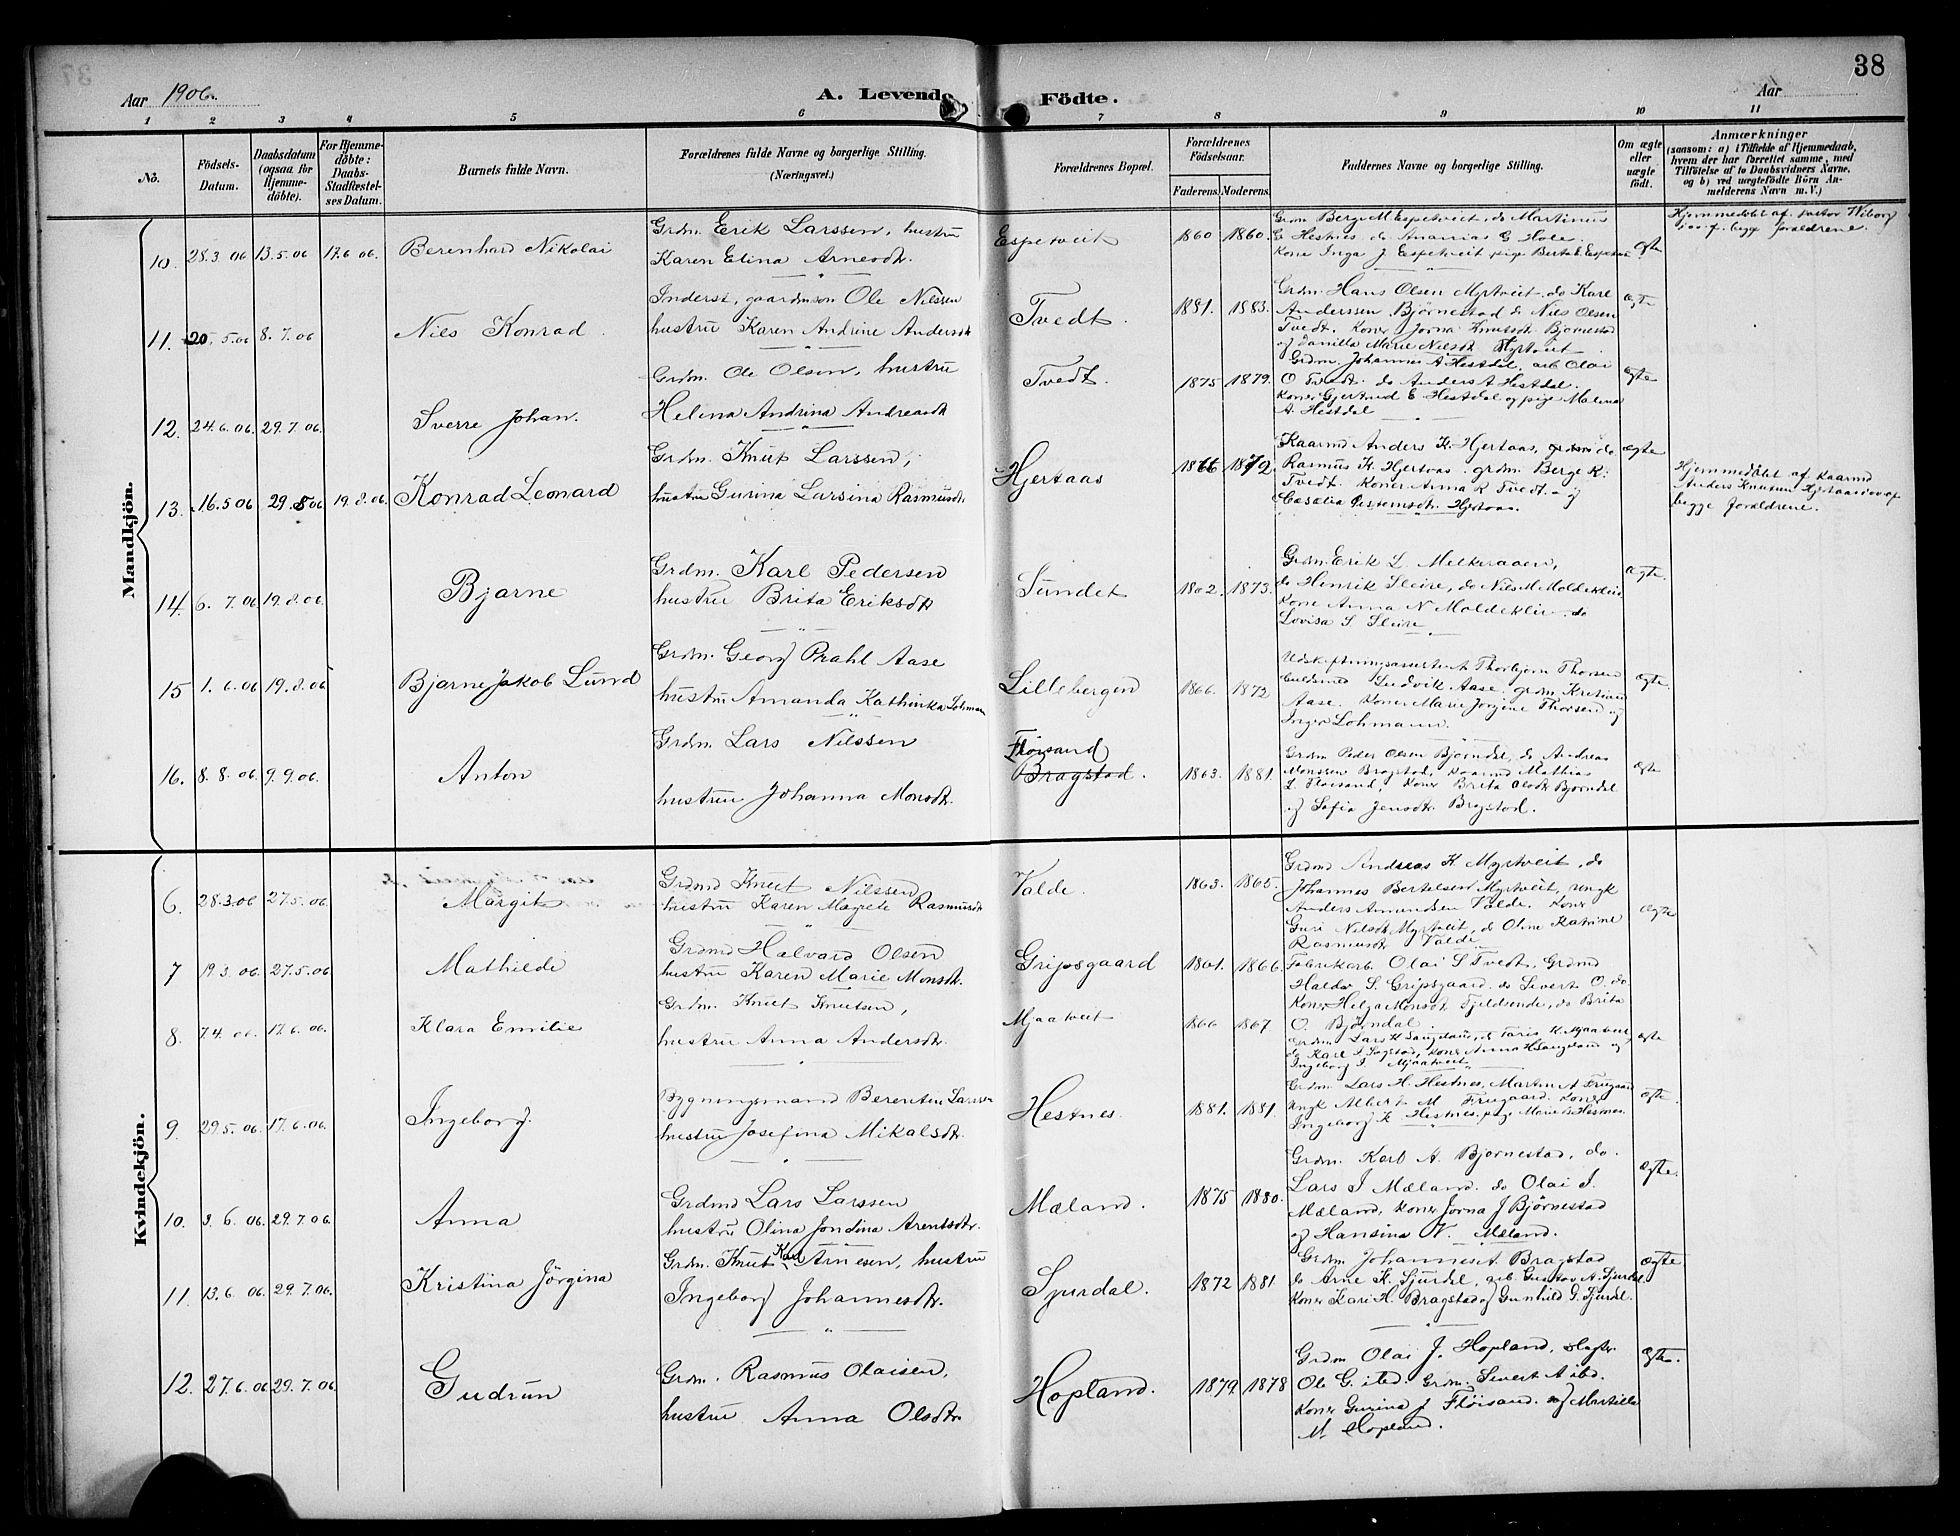 38
Aar 1906.
A. Levende Födte.
Aar
1 2 3 4 5 6 7 8 9 10 11
No.
Födsels-Datum.
Daabsdatum (ogsaa for Hjemme-döbte).
For Hjemme-döbte: Daabs-Stadfæstel-ses Datum.
Barnets fulde Navn.
Forældrenes fulde Navne og borgerlige Stilling.
(Næringsvei.)
Forældrenes Bopæl.
Forældrenes Födselsaar.
Faderens. Moderens.
Faddernes Navne og borgerlige Stilling.
Om ægte eller uægte födt.
Anmærkninger
(saasom: a) i Tilfælde af Hjemmedaab,
hvem der har forrettet samme, med
Tilföielse af to Daabsvidners Navne,
og b) ved uægtefödte Börn An-
melderens Navn m. V.)
Mandkjön.
10. 28.3.06 13.5.06 17.6.06. Berenhard Nikolai
Grdm. Erik Larssen, hustru
Karen Elina Arnesdtr.
Espetveit 1860 1860.
Grdm Berge M Espetveit, do Martinus
G Hestnes, do Ananias G Hole.
Kone Inga J. Espetveit pige Berta E. Espetveit
ægte
Hjemmedöbt af pastor Wiborg
begge forældrene.
11. 20.5.06 8.7.06 Nils Konrad.
Inderst, gaardmsøn Ole Nilssen
hustru Karen Andrine Andersdtr
Tvedt. 1881. 1883.
Grdm. Hans Olsen Myrtveit. do Karl
Anderssen Björnestad do Niels Olsen
Tvedt. Koner Jorna Knutsdtr Björnestad
og Danilla Marie Nilsdtr Myrtveit
ægte
12. 24.6.06. 29.7.06. Sverre Johan.
Grdm. Ole Olsen, hustru
Helina Andrina Andreasdtr
Tvedt. 1875 1879.
Grdm. Johannes A Hestdal, arb Olai
O Tvedt. do Anders A Hestdal.
Koner Gjertrud E Hestdal og pige Malena
A. Hestdal
ægte
13. 16.5.06 29.5.06 19.8.06. Konrad Leonard
Grdm. Knut Larssen,
hustru Gurina Larsina Rasmusdtr
Hjertaas 1866 1872.
Kaarmd Anders K. Hjertaas, do
Rasmus K Hjertaas. grdm. Berge K.
Tvedt. Koner Anna K Tvedt. og
Hjertaas.
ægte
Hjemmedöbt af Kaarmd
Anders Knutsen Hjertaas
begge forældrene.
14. 6.7.06 19.8.06. Bjarne
Grdm. Karl Pedersen
hustru Brita Eriksdtr
Sundet 1862. 1873.
Grdm. Erik L Melkeraaen,
do Henrik Sleire, do Nils M Moldeklev
Kone Anna N Moldeklev. do
Lovisa S Sleire
ægte.
15 1.6.06 19.8.06 Bjarne Jakob Lund
Grdm. Georg Prahl Aase
hustru Amanda Kathinka Lohmann
Lillebergen 1866. 1872
Udskiftningsassistent Thorbjorn Thorsen
Ludvik Aase, grdm. Kristian
Aase. Koner Marie Jorgine Thorsen og
Inger Lohmann.
ægte.
16. 8.8.06. 9.9.06. Anton
Grdm. Lars Nilssen
hustru Johanna Monsdtr.
Flöisand
Bragstad. 1863. 1881.
Grdm Peder Olsen Björndal, do Andreas
Monssen Bragstad, Kaarmd Mathias
L Flöisand. Koner Brita Olsdtr Björndal
og Sofia Jensdtr Bragstad.
ægte
Kvindekjön.
6. 28.3.06 27.5.06. Margit
Grdmd Knut Nilssen
hustru Karen Magrete Rasmusdtr
Valde. 1863. 1865.
Grdmd Andreas K Myrtveit, do
Johannes Bertelsen Myrtveit, ungk
Anders Amundsen Valde. Koner
Guri Nilsdtr Myrtveit, do Oline Katrine
Rasmusdtr Valde
ægte
7 19.3.06. 27.5.06 Mathilde
Grdmd Halvard Olsen
hustru Karen Marie Monsdtr.
Gripsgaard 1861. 1866.
Fabrikarb. Olai S Tvedt, Grdmd
Haldor S. Gripsgaard. do Sivert O. do
Koner Helga Monsdtr Fjeldvende, do Brita
O. Björndal.
8. 7.4.06. 17.6.06. Klara Emilie
Grdm. Knut Knutsen,
hustru Anna Andersdtr.
Mjaatveit 1866 1867.
Grdm. Lars H Langeland, do K Mjaatveit
do Karl I Sagstad, Koner Anna H Langeland og
Ingeborg I. Mjaatveit
ægte
9. 29.5.06. 17.6.06. Ingeborg.
Bygningsmand Berentin Larssen
hustru Josefina Mikalsdtr.
Hestnes. 1881. 1881.
Grdm. Lars H. Hestnes, Martin A
ungk Albert M. Koner
Ingeborg K Hestnes. pige Marie Hestnes.
ægte.
10. 3.6.06. 29.7.06. Anna
Grdmd Lars Larssen
hustru Olina Jondina Arentsdtr.
Mæland. 1875 1880.
Grdm. Karl A. Bjornestad, do.
Lars J Mæland. do Olai J.
Mæland, Koner Jorna J Björnestad
og Hansina N. Mæland.
ægte.
11. 13.6.06. 29.7.06. Kristina Jörgina
Grdm. Knut Karl Arnesen, hustru
Ingeborg Johannesdtr.
Sjurdal. 1872 1881.
Grdm Johannes A. Bragstad
do Arne K. Sjurdal, arb Gustav A. Sjurdal
Koner Kari H. Bragstad og Gunhild G. Sjurdal.
ægte
12. 27.6.06 29.7.06. Gudrun
Grdm. Rasmus Olaisen,
hustru Anna Olsdtr.
Hopland. 1879. 1878
Grdm Olai J. Hopland,
Ole G. Grdm. Sivert A ibd.
Koner Gurina J Flöisand. og Martilla
M. Hopland.
ægte.